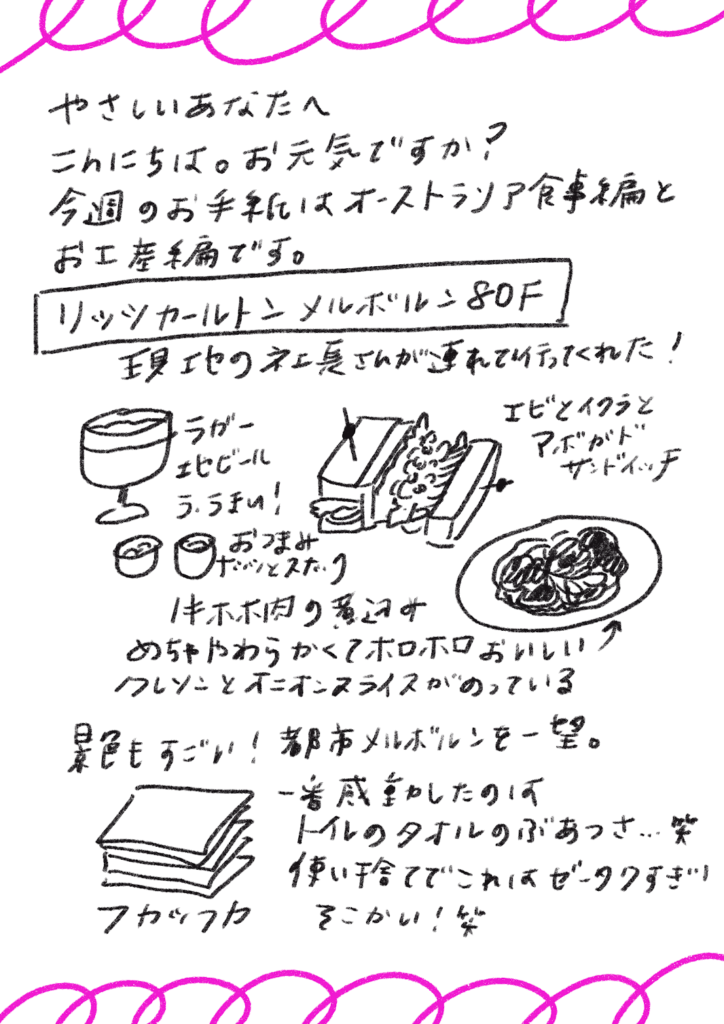 やさしいあなたへ
こんにちは。お元気ですか?
今週のお手紙はオーストラリア食事編と
お土産編です。
リッツカールトンメルボルン80F
現地の社長さんが連れて行ってくれた!
ラガー
生ビール
う、うまい!
エビとイクラと
アボガド
サンドイッチ
おつまみ
ナッツとスナック
牛ホホ肉の煮込み
めちゃやわらかくてホロホロおいしい
クレソンとオニオンスライスがのっている
景色もすごい!都市メルボルンを一望。
一番感動したのは
トイレのタオルのぶあつさ…笑
使い捨てでこれはゼータクすぎ!
フカッフカ
そこかい!笑